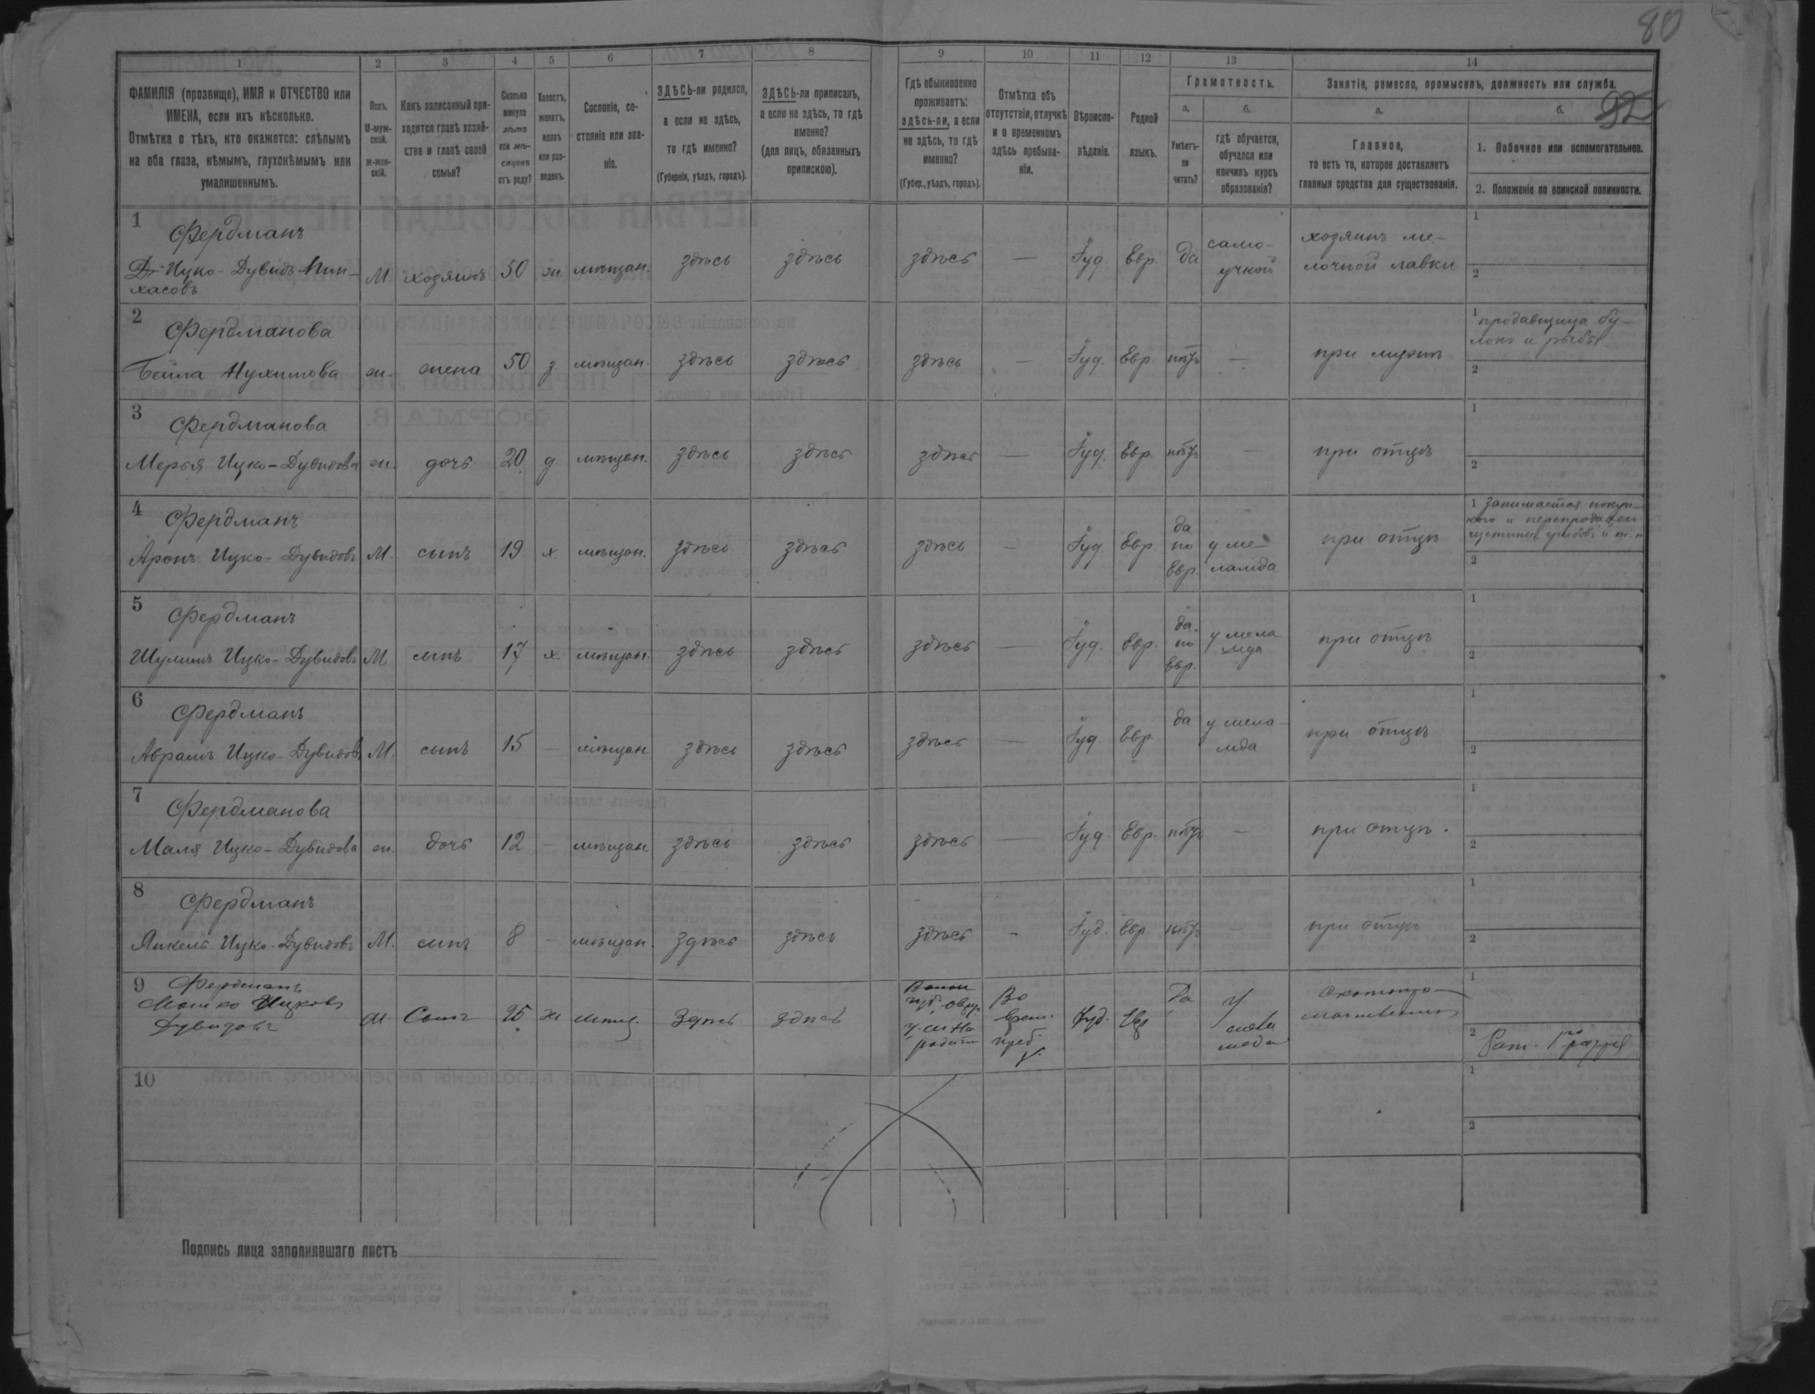 80
1
2
3
4
5
6
7
8
9
10
11
12
13
14
ФАМИЛІЯ (прозвище), ИМЯ и ОТЧЕСТВО или
ИМЕНА, если ихъ нѣсколько.
Отмѣтка о тѣхъ, кто окажется: слѣпымъ
на оба глаза, нѣмымъ, глухонѣмымъ или
умалишеннымъ.
Полъ.
М-муж-
ской.
Ж-жен-
скій.
Какъ записанный при-
ходится главѣ хозяй-
ства и главѣ своей
семьи?
Сколько
минуло
лѣтъ
или мѣ-
сяцевъ
отъ роду?
Холостъ,
женатъ,
вдовъ
или раз-
веденъ.
Сословіе, со-
стояніе или зва-
ніе.
ЗДѢСЬ-ли родился,
а если не здѣсь,
то гдѣ именно?
(Губернія, уѣздъ, городъ).
ЗДѢСЬ-ли приписанъ,
а если не здѣсь, то гдѣ
именно?
(для лицъ, обязанныхъ
припискою).
Гдѣ обыкновенно
проживаетъ:
здѣсь-ли, а если
не здѣсь, то гдѣ
именно?
(Губер., уѣздъ, городъ).
Отмѣтка объ
отсутствіи, отлучкѣ
и о временномъ
здѣсь пребыва-
ніи.
Вѣроиспо-
вѣданіе.
Родной
языкъ.
Грамотность.
а.
Умѣетъ-
ли
читать?
б.
гдѣ обучается,
обучался или
кончилъ курсъ
образованія?
Занятіе, ремесло, промыселъ, должность или служба.
а.
Главное,
то есть то, которое доставляетъ
главныя средства для существованія.
б.
1. Побочное или вспомогательное.
2. Положеніе по воинской повинности.
1 Фердманъ
Ицко-Дувидъ Пин-
хасовъ
М. хозяинъ 50 ж. мѣщан. здѣсь здѣсь здѣсь — Іуд. Евр. да
само-
учкой
хозяинъ ме-
лочной лавки
1
2
2 Фердманова
Бейла Нухимова ж. жена 50 з. мѣщан. здѣсь здѣсь здѣсь — Іуд. Евр. нѣтъ — при мужѣ
1 продавщица бу-
локъ и рыбы
2
3 Фердманова
Мерья Ицко-Дувидова ж. дочь 20 д. мѣщан. здѣсь здѣсь здѣсь — Іуд. Евр. нѣтъ — при отцѣ
1
2
4 Фердманъ
Аронъ Ицко-Дувидовъ М. сынъ 19 х. мѣщан. здѣсь здѣсь здѣсь — Іуд. Евр.
да
по
Евр.
у ме-
ламда
при отцѣ
1 Занимается покуп-
кою и перепродажею
щетины, грибовъ и т. п.
2
5 Фердманъ
Шулимъ Ицко-Дувидовъ М. сынъ 17 х. мѣщан. здѣсь здѣсь здѣсь — Іуд. Евр.
да
по
Евр.
у мела
мда
при отцѣ
1
2
6 Фердманъ
Абрамъ Ицко-Дувидовъ М. сынъ 15 — мѣщан. здѣсь здѣсь здѣсь — Іуд. Евр. да
у мела-
мда
при отцѣ
1
2
7 Фердманова
Маля Ицко-Дувидова ж. дочь 12 — мѣщан. здѣсь здѣсь здѣсь — Іуд. Евр. нѣтъ — при отцѣ.
1
2
8 Фердманъ
Янкель Ицко-Дувидовъ М. сынъ 8 — мѣщан. здѣсь здѣсь здѣсь - Іуд. Евр. нѣтъ — при отцѣ
1
2
9 Фердманъ
Мошко Ицковъ
Дувидовъ
М. Сынъ 25 ж мѣщ. Здѣсь здѣсь
Во
врем.
преб.
Іуд. Евр Да
у
1
2
10
1
2
Подпись лица заполнявшаго листъ